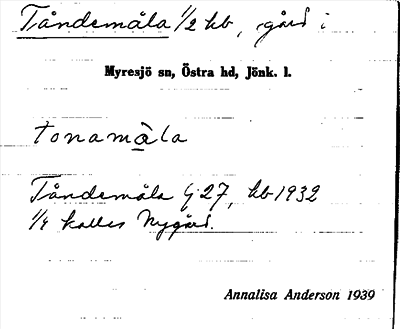 Tåndemåla 1/2 kb, gård i
Myresjö sn, Östra hd, Jönk. l.
tonamåla
Tåndemåla G 27, kb 1932
1/4 kallas Nygård.
Annalisa Anderson 1939